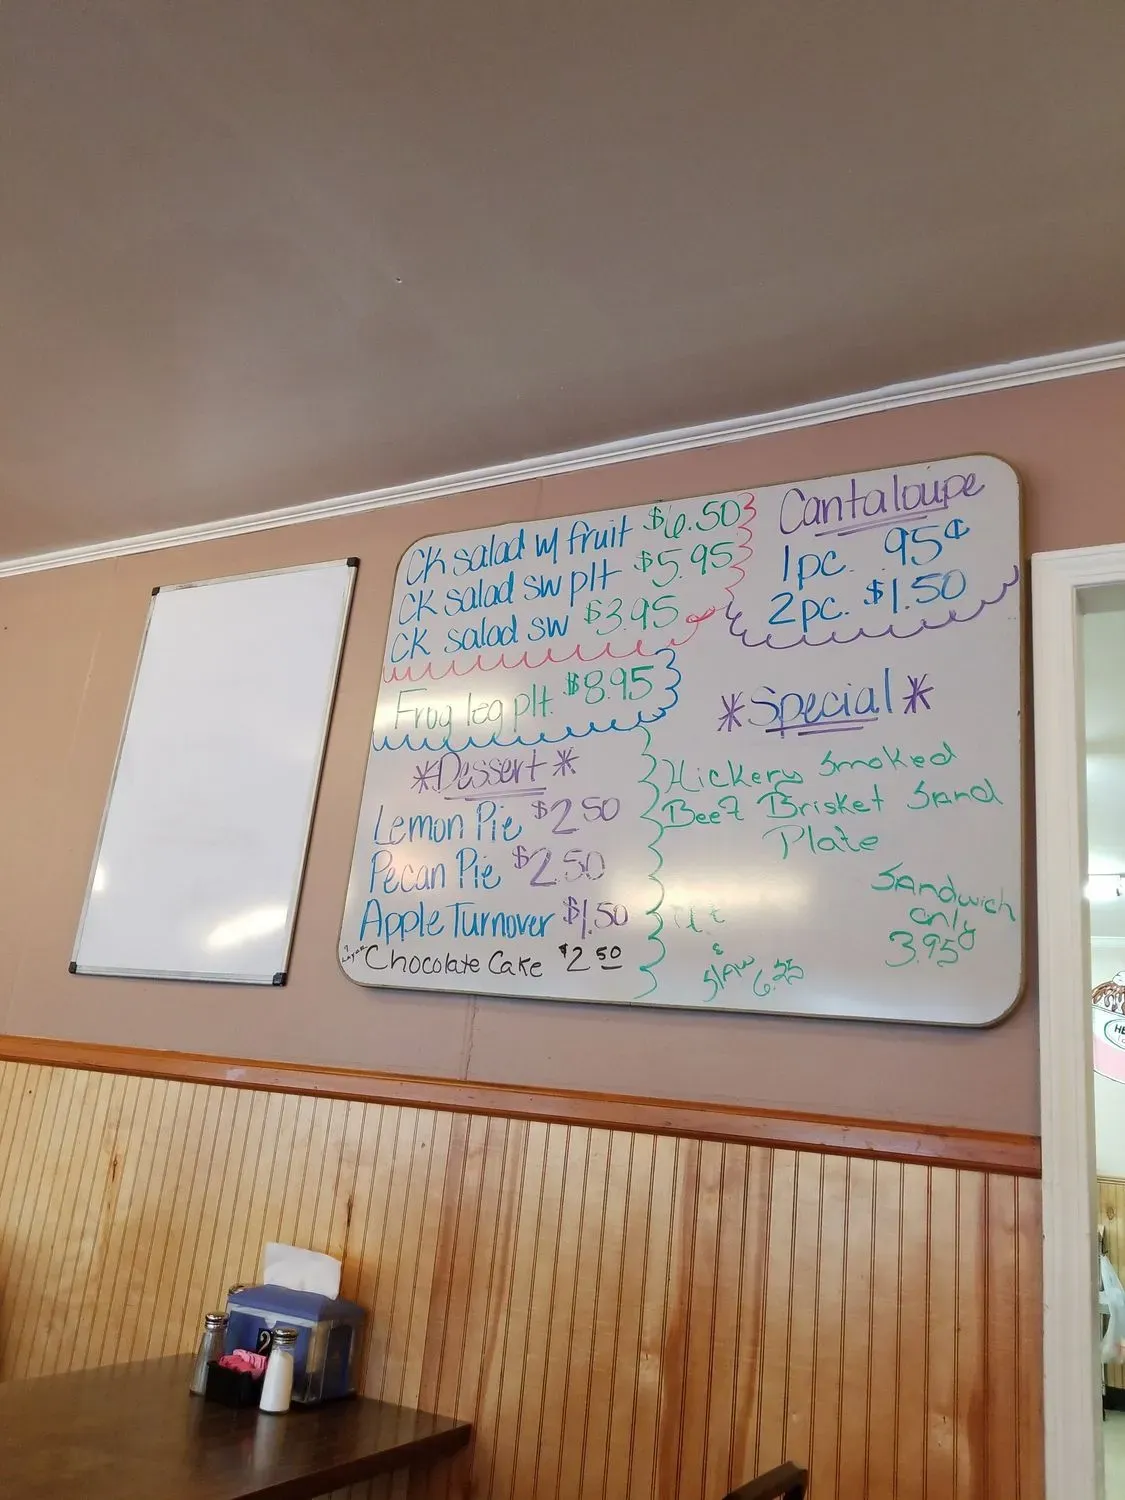 CK salad w/ fruit $6.50
CK salad sw plt $5.95
CK salad sw $3.95
Frog leg plt. $8.95
*Dessert*
Lemon Pie $2.50
Pecan Pie $2.50
Apple Turnover $1.50
Chocolate Cake $2.50
Cantaloupe
1pc. 95¢
2pc. $1.50
*Special*
Hickery Smoked
Beef Brisket Sand
Plate
Sandwich
only
3.95
&
Slaw 6.25